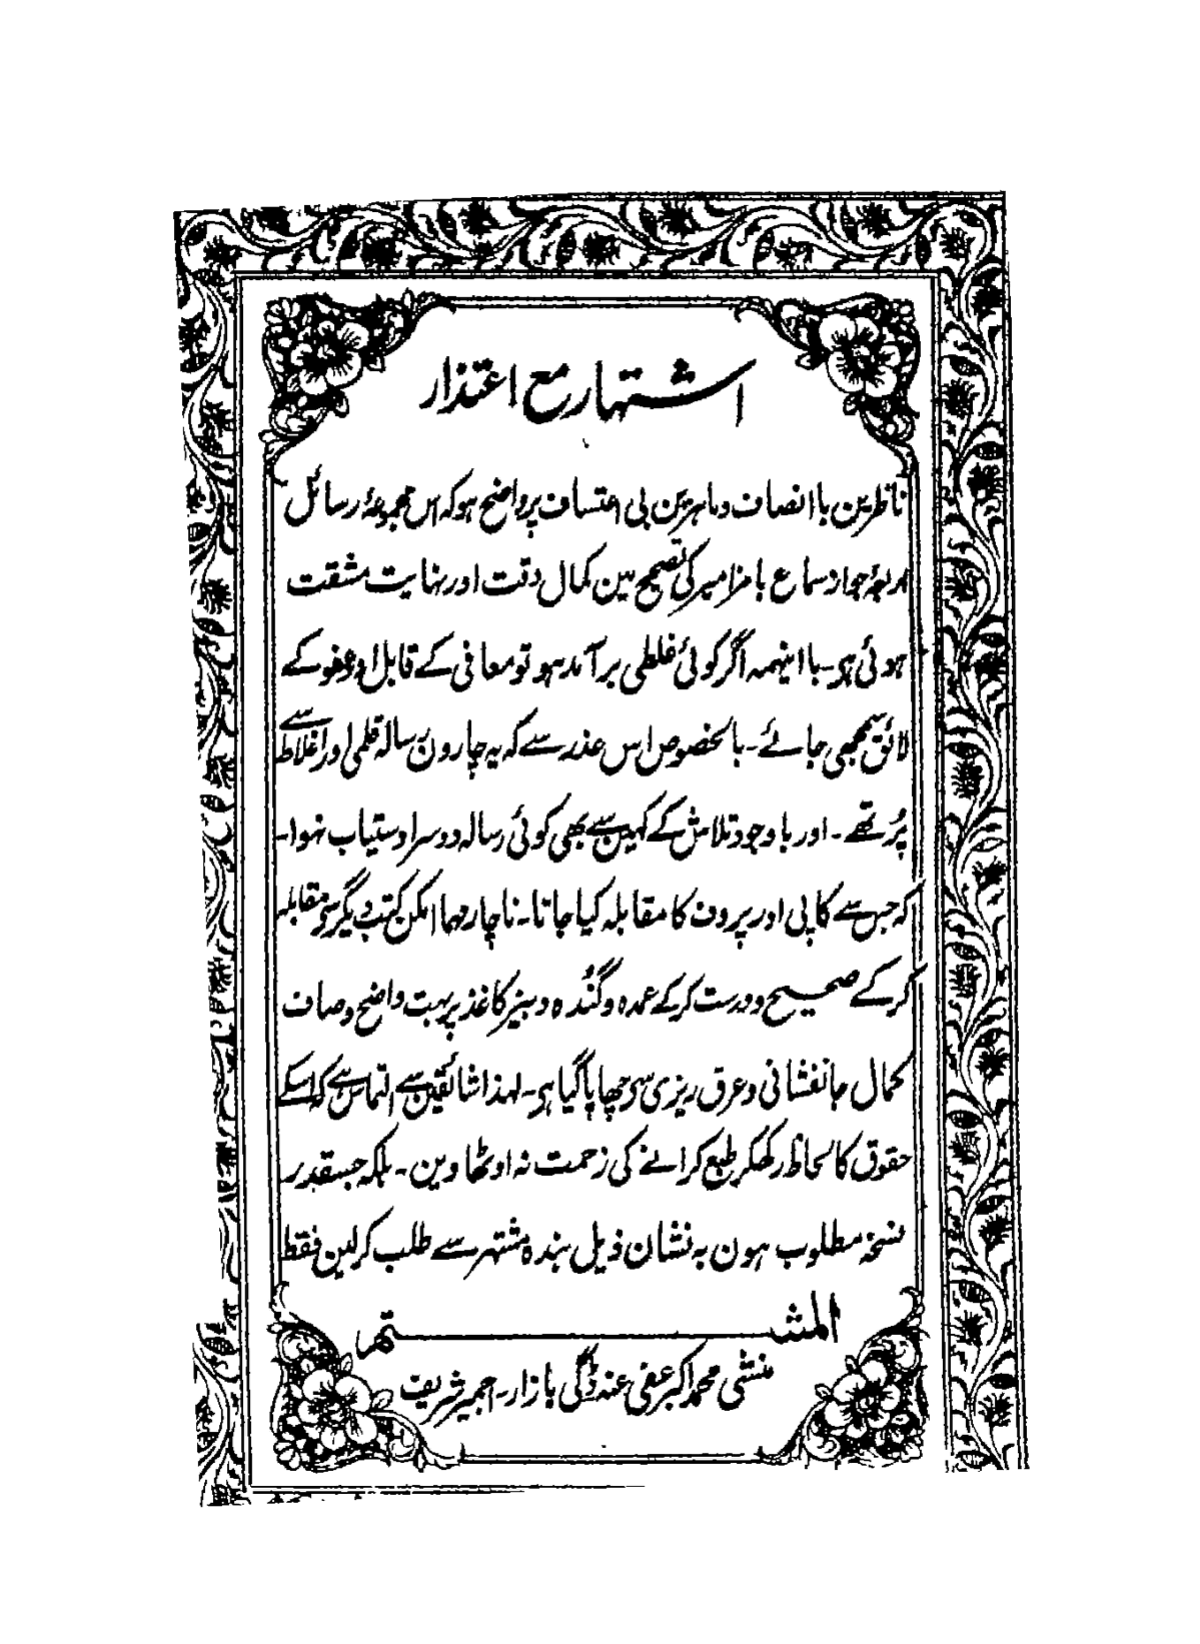 اشتہار مع اعتذار
ناظرین با انصاف و ماہرین بی اعتساف پر واضح ہو کہ اس مجموعۂ رسائل
اربعۂ جواز سماع با مزامیر کی تصحیح مین کمال دقت اور نہایت مشقت
ہوئی ہو۔ با اینہمہ اگر کوئی غلطی بر آمد ہو تو معافی کے قابل اور عفو کے
لائق سمجھی جائے۔ بالخصوص اس عذر سے کہ یہ چارون رسالہ قلمی اور اغلاط سے
پُر تھے۔ اور باوجود تلاش کے کہین سے بھی کوئی رسالہ دوسرا دستیاب نہوا۔
کہ جس سے کاپی اور پروف کا مقابلہ کیا جاتا۔ ناچار مہما امکن کتب دیگر سے مقابلہ
کرکے صحیح و درست کرکے عمدہ و گندہ و دبیز کاغذ پر بہت واضح و صاف
کمال جانفشانی و عرق ریزی سے چھاپا گیا ہو۔ لہذا شائقین سے التماس ہے کہ اسکے
حقوق کا لحاظ رکھکر طبع کرانے کی زحمت نہ اوٹھاوین۔ بلکہ جسقدر
نسخہ مطلوب ہون بہ نشان ذیل بندہ مشتہر سے طلب کرلین فقط
المشتہر
منشی محمد اکبر عفی عنہ ڈگی بازار۔ اجمیر شریف